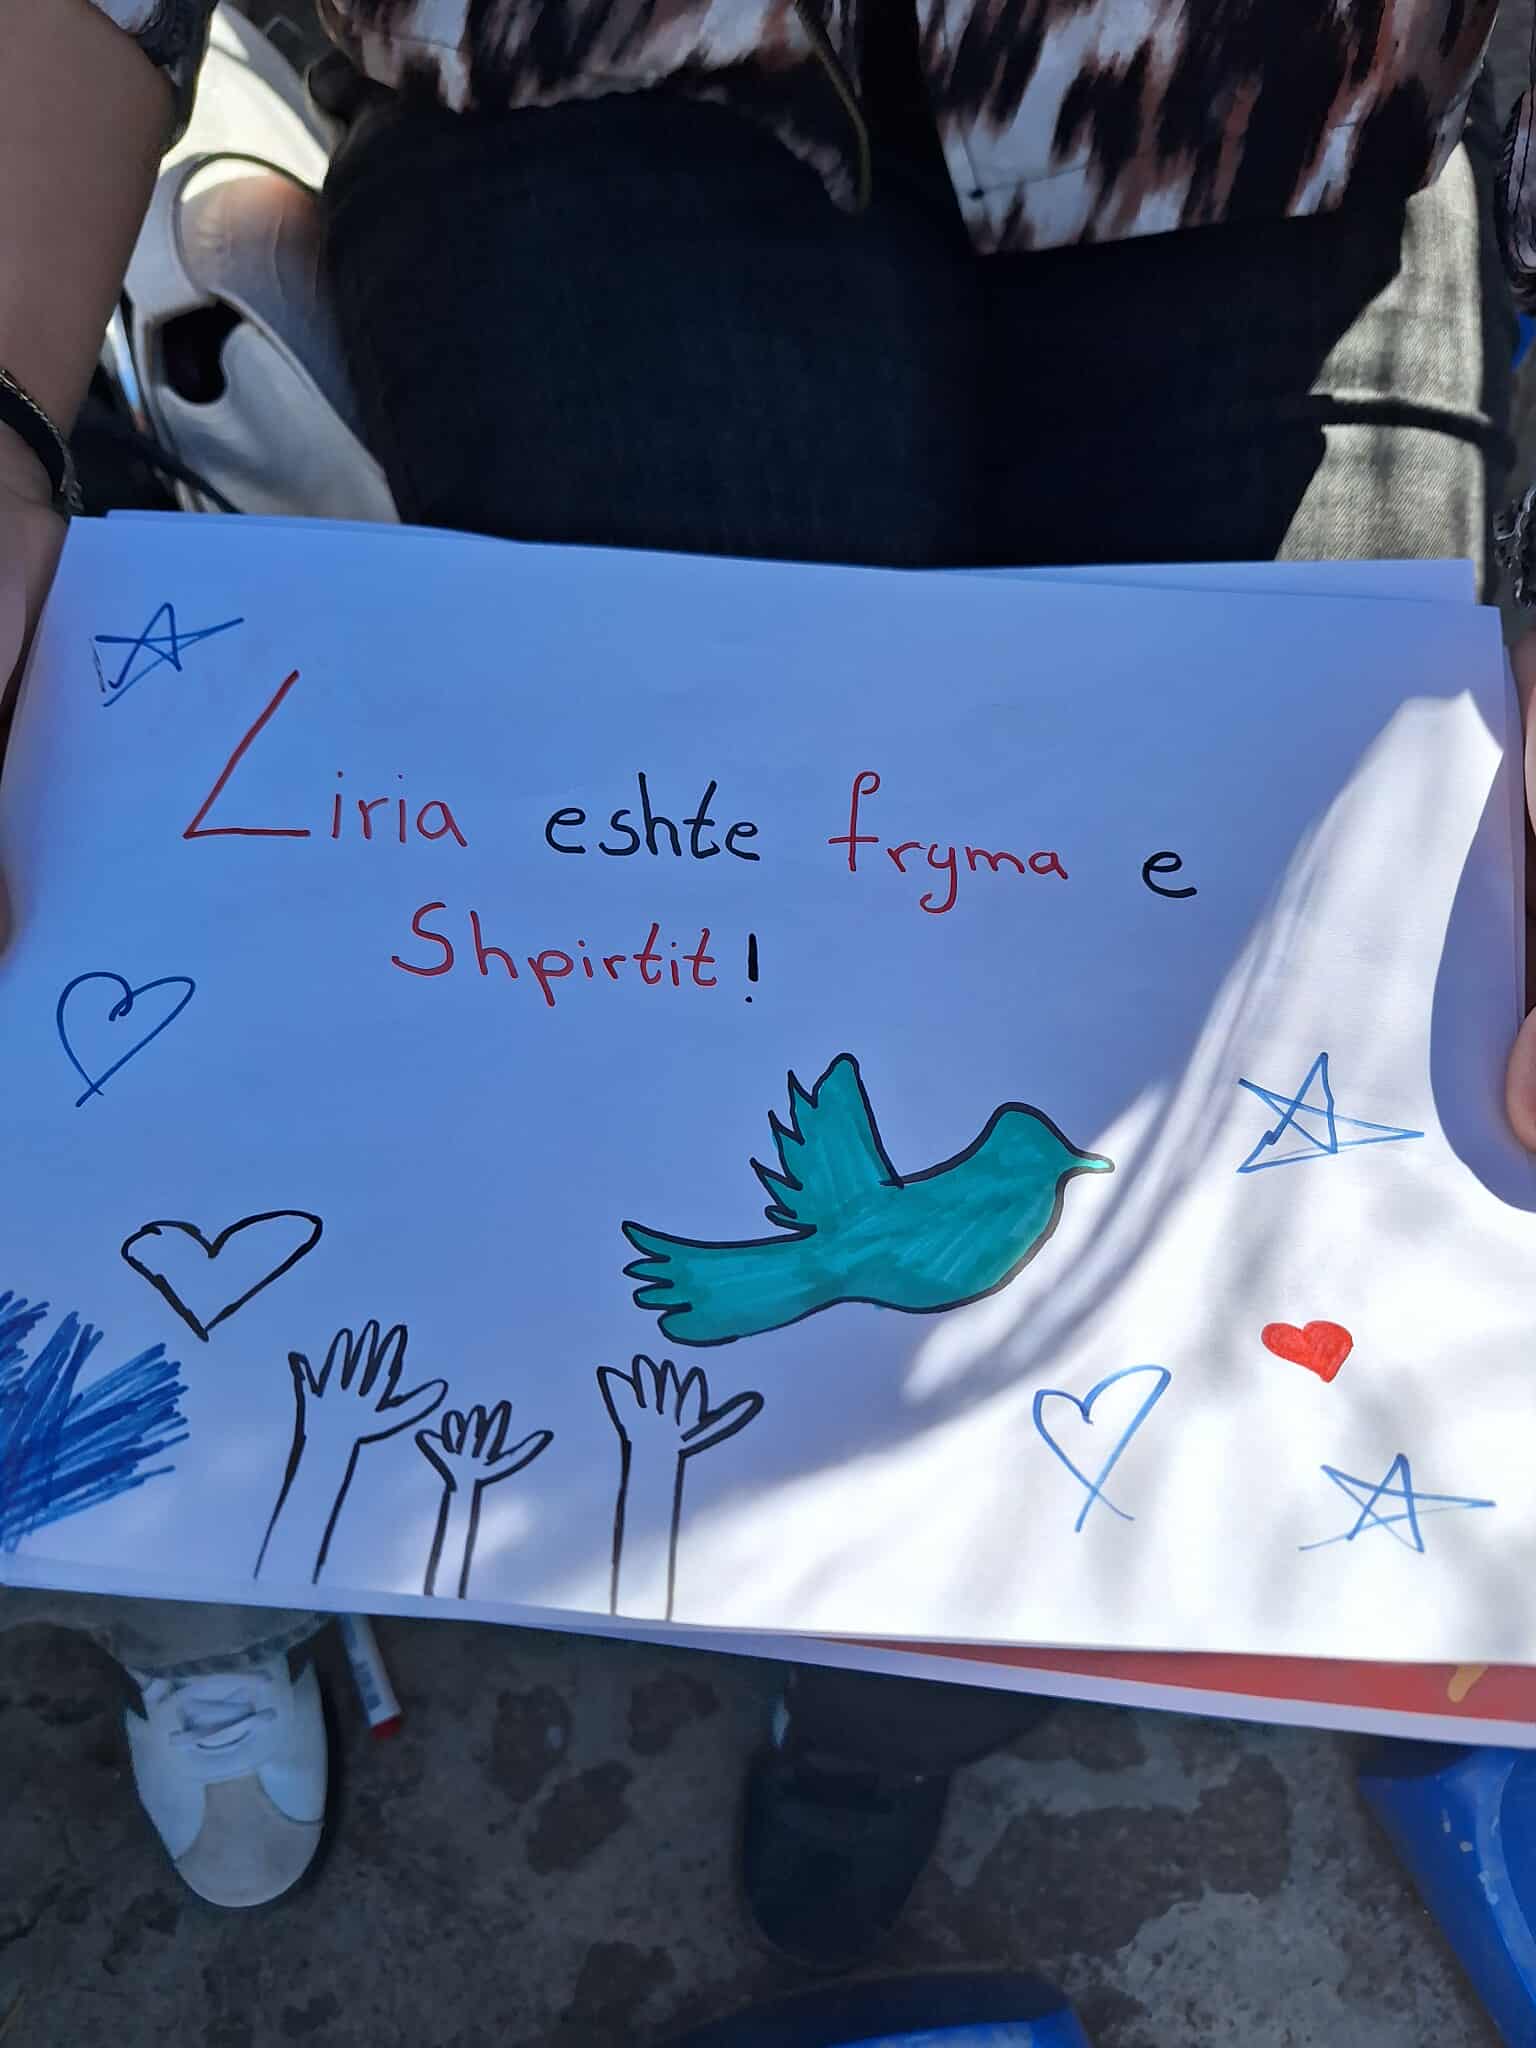 Liria eshte fryma e
Shpirtit!